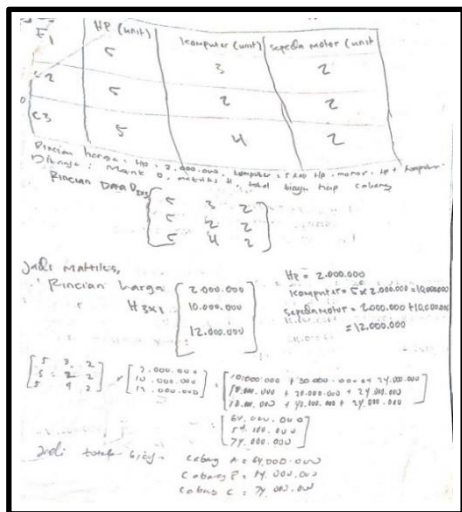 HP (unit) Komputer (unit) sepeda motor (unit
E1 5 3 2
C2 5 2 2
C3 5 4 2
Rincian harga : HP = 2.000.000, komputer = 5 HP, motor = HP + komputer
Ditanya : matriks H, total biaya tiap cabang
Rincian DATA D3x3
[ 5 3 2
5 2 2
5 4 2 ]
Jadi Matriks,
Rincian harga
H 3x1
[ 2.000.000
10.000.000
12.000.000 ]
HP = 2.000.000
Komputer = 5 x 2.000.000 = 10.000.000
sepeda motor = 2.000.000 + 10.000.000
= 12.000.000
[ 5 3 2
5 2 2
5 4 2 ]
x
[ 2.000.000
10.000.000
12.000.000 ]
=
[ 10.000.000 + 30.000.000 + 24.000.000
10.000.000 + 20.000.000 + 24.000.000
10.000.000 + 40.000.000 + 24.000.000 ]
= [ 64.000.000
54.000.000
74.000.000 ]
Jadi total
Cabang A = 64.000.000
Cabang = 54.000.000
Cabang C = 74.000.000